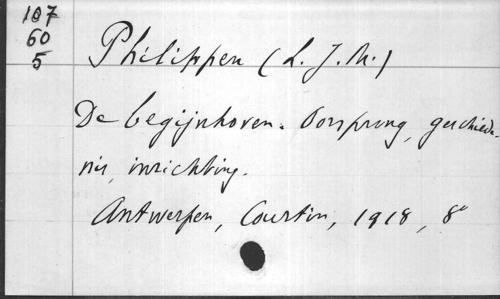 107
60
5
Philippen (L. J. M.)
De begijnhoven. Oorsprong, geschiede-
nis, inrichting.
Antwerpen, Courtin, 1918, 8°